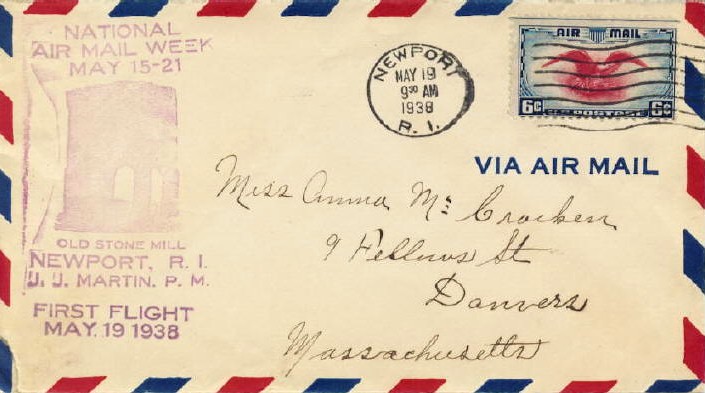 NATIONAL
AIR MAIL WEEK
MAY 15-21
OLD STONE MILL
NEWPORT, R. I.
J. J. MARTIN, P. M.
FIRST FLIGHT
MAY. 19 1938
NEWPORT
MAY 19
9³⁰ AM
1938
R. I.
AIR MAIL
6¢ U.S. POSTAGE 6¢
VIA AIR MAIL
Miss Anna Mc Cracken
9 Fellows St
Danvers
Massachusetts